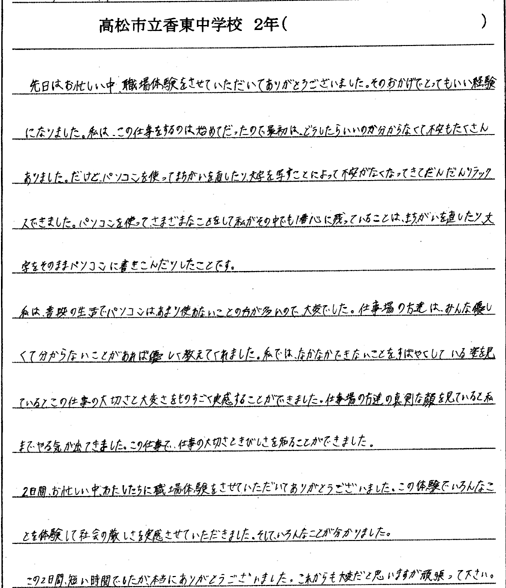 高松市立香東中学校 2年( )
先日はお忙しい中、職場体験をさせていただいてありがとうございました。そのおかげでとってもいい経験
になりました。私は、この仕事をするのは始めてだったので最初は、どうしたらいいのか分からなくて不安もたくさん
ありました。だけど、パソコンを使ってまちがいを直したり、文字を写すことによって不安がなくなってきてだんだんリラック
スできました。パソコンを使ってさまざまなことをして私がその中でも1番心に残っていることは、まちがいを直したり、文
字をそのままパソコンに書きこんだりしたことです。
私は、普段の生活でパソコンはあまり使わないことの方が多いので、大変でした。仕事場の方達は、みんな優し
くて分からないことがあれば優しく教えてくれました。私では、なかなかできないことをすばやくしている姿を見
ているとこの仕事の大切さと大変さをものすごく実感することができました。仕事場の方達の真剣な顔を見ていると私
までやる気が出てきました。この仕事で、仕事の大切さときびしさを知ることができました。
2日間、お忙しい中、わたしたちに職場体験をさせていただいてありがとうございました。この体験でいろんなこ
とを体験して社会の厳しさを実感させていただきました。そして、いろんなことが分かりました。
この2日間、短い時間でしたが、本当にありがとうございました。これからも大変だと思いますが頑張って下さい。